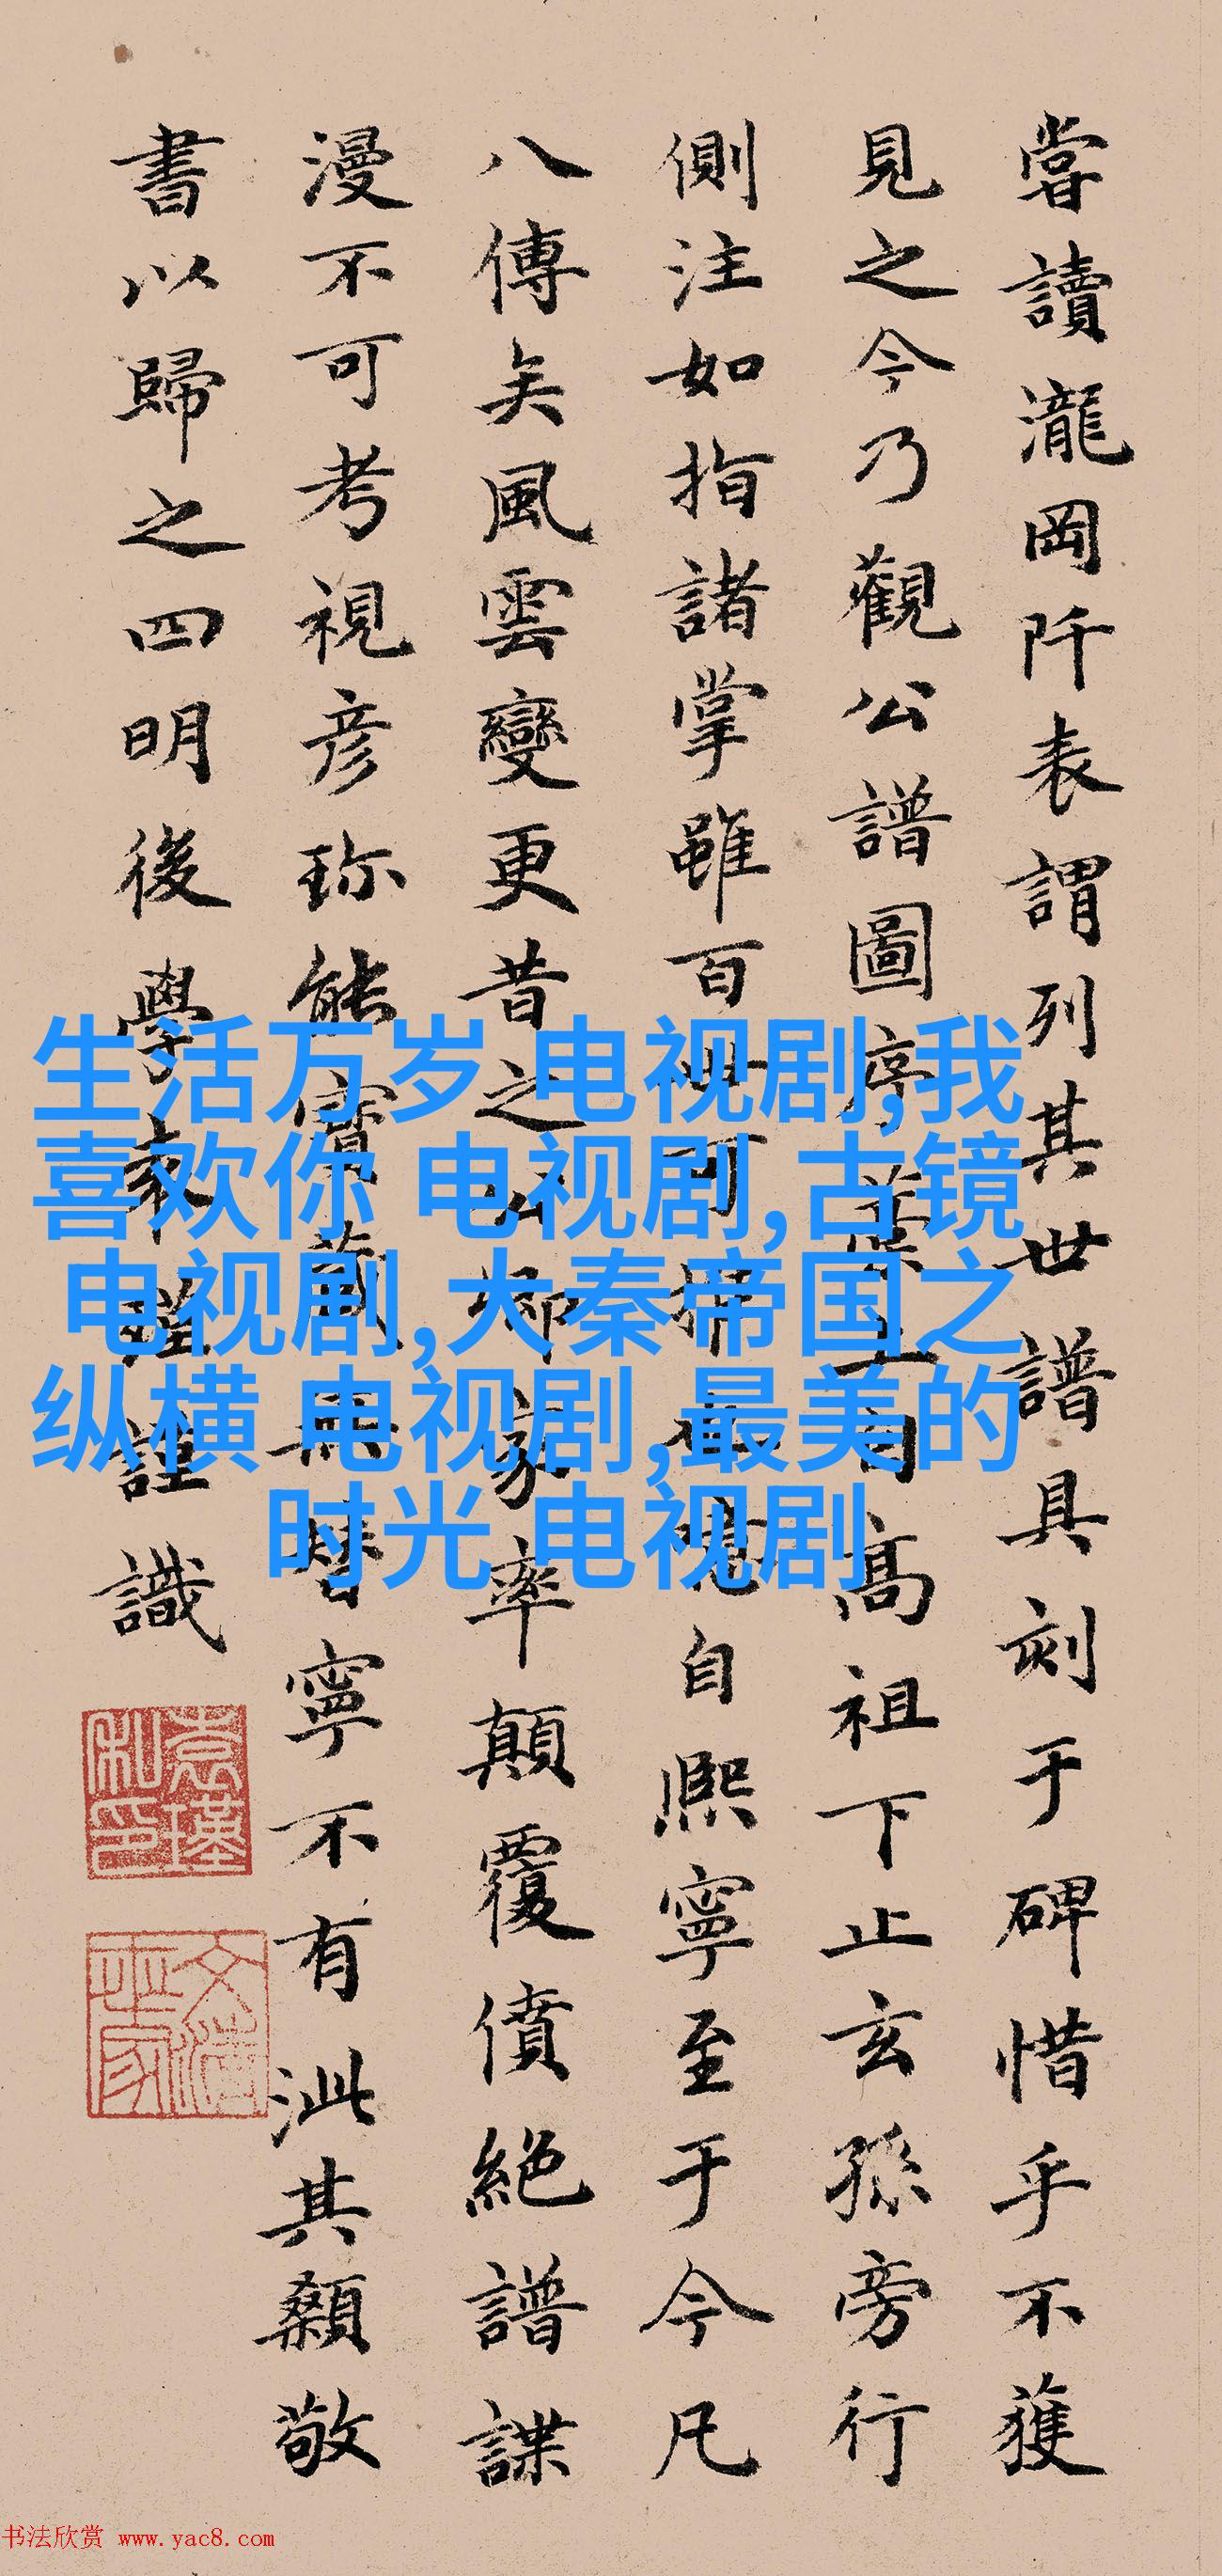 嘗讀瀧岡阡表謂列其世譜具刻于碑惜乎不獲
見之今乃觀公譜圖序上自高祖下止玄孫旁行
側注如指諸掌雖百世可自熙寧至于今凡
八傳矣風雲變更昔之公卿家率顛覆僨絕譜諜
漫不可考視彥珎能寶藏無替寧不有泚其顙敬
書以歸之四明後學袁謹識
生活万岁 电视剧,我
喜欢你 电视剧,古镜
电视剧,大秦帝国之
纵横 电视剧,最美的
时光 电视剧
书法欣赏 www.yac8.com